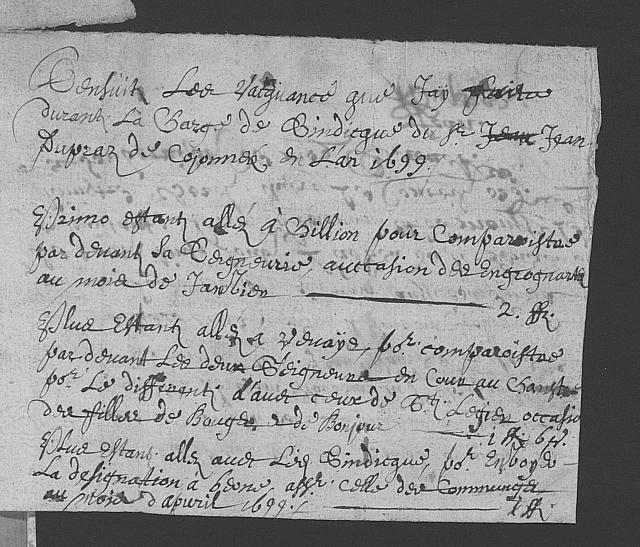 Sensuit Les vacquance que Jay faite
durant La Charge de Sindicque du Sr. Jean
Dupraz de Cojonnex en L'an 1699.
Primo estant allé a Chillion pour Comparoistre
par devant Sa Seigneurie, auccasion des
au mois de Janvier 2. ffr.
Plus Estant allé à Vevaÿe, por. comparoistre
par devant Les deux Seigneurs en Cour au
por. Le different d'avec ceux de St. Legier occasio
des filles de Bouge, & de Bonjour 1 ffr 6 s.
Plus estant allé avec Les Sindicque, por. Envoyé
La designation à berne, affr. celle des Communes
au mois d'apvril 1699. 1 ffr.